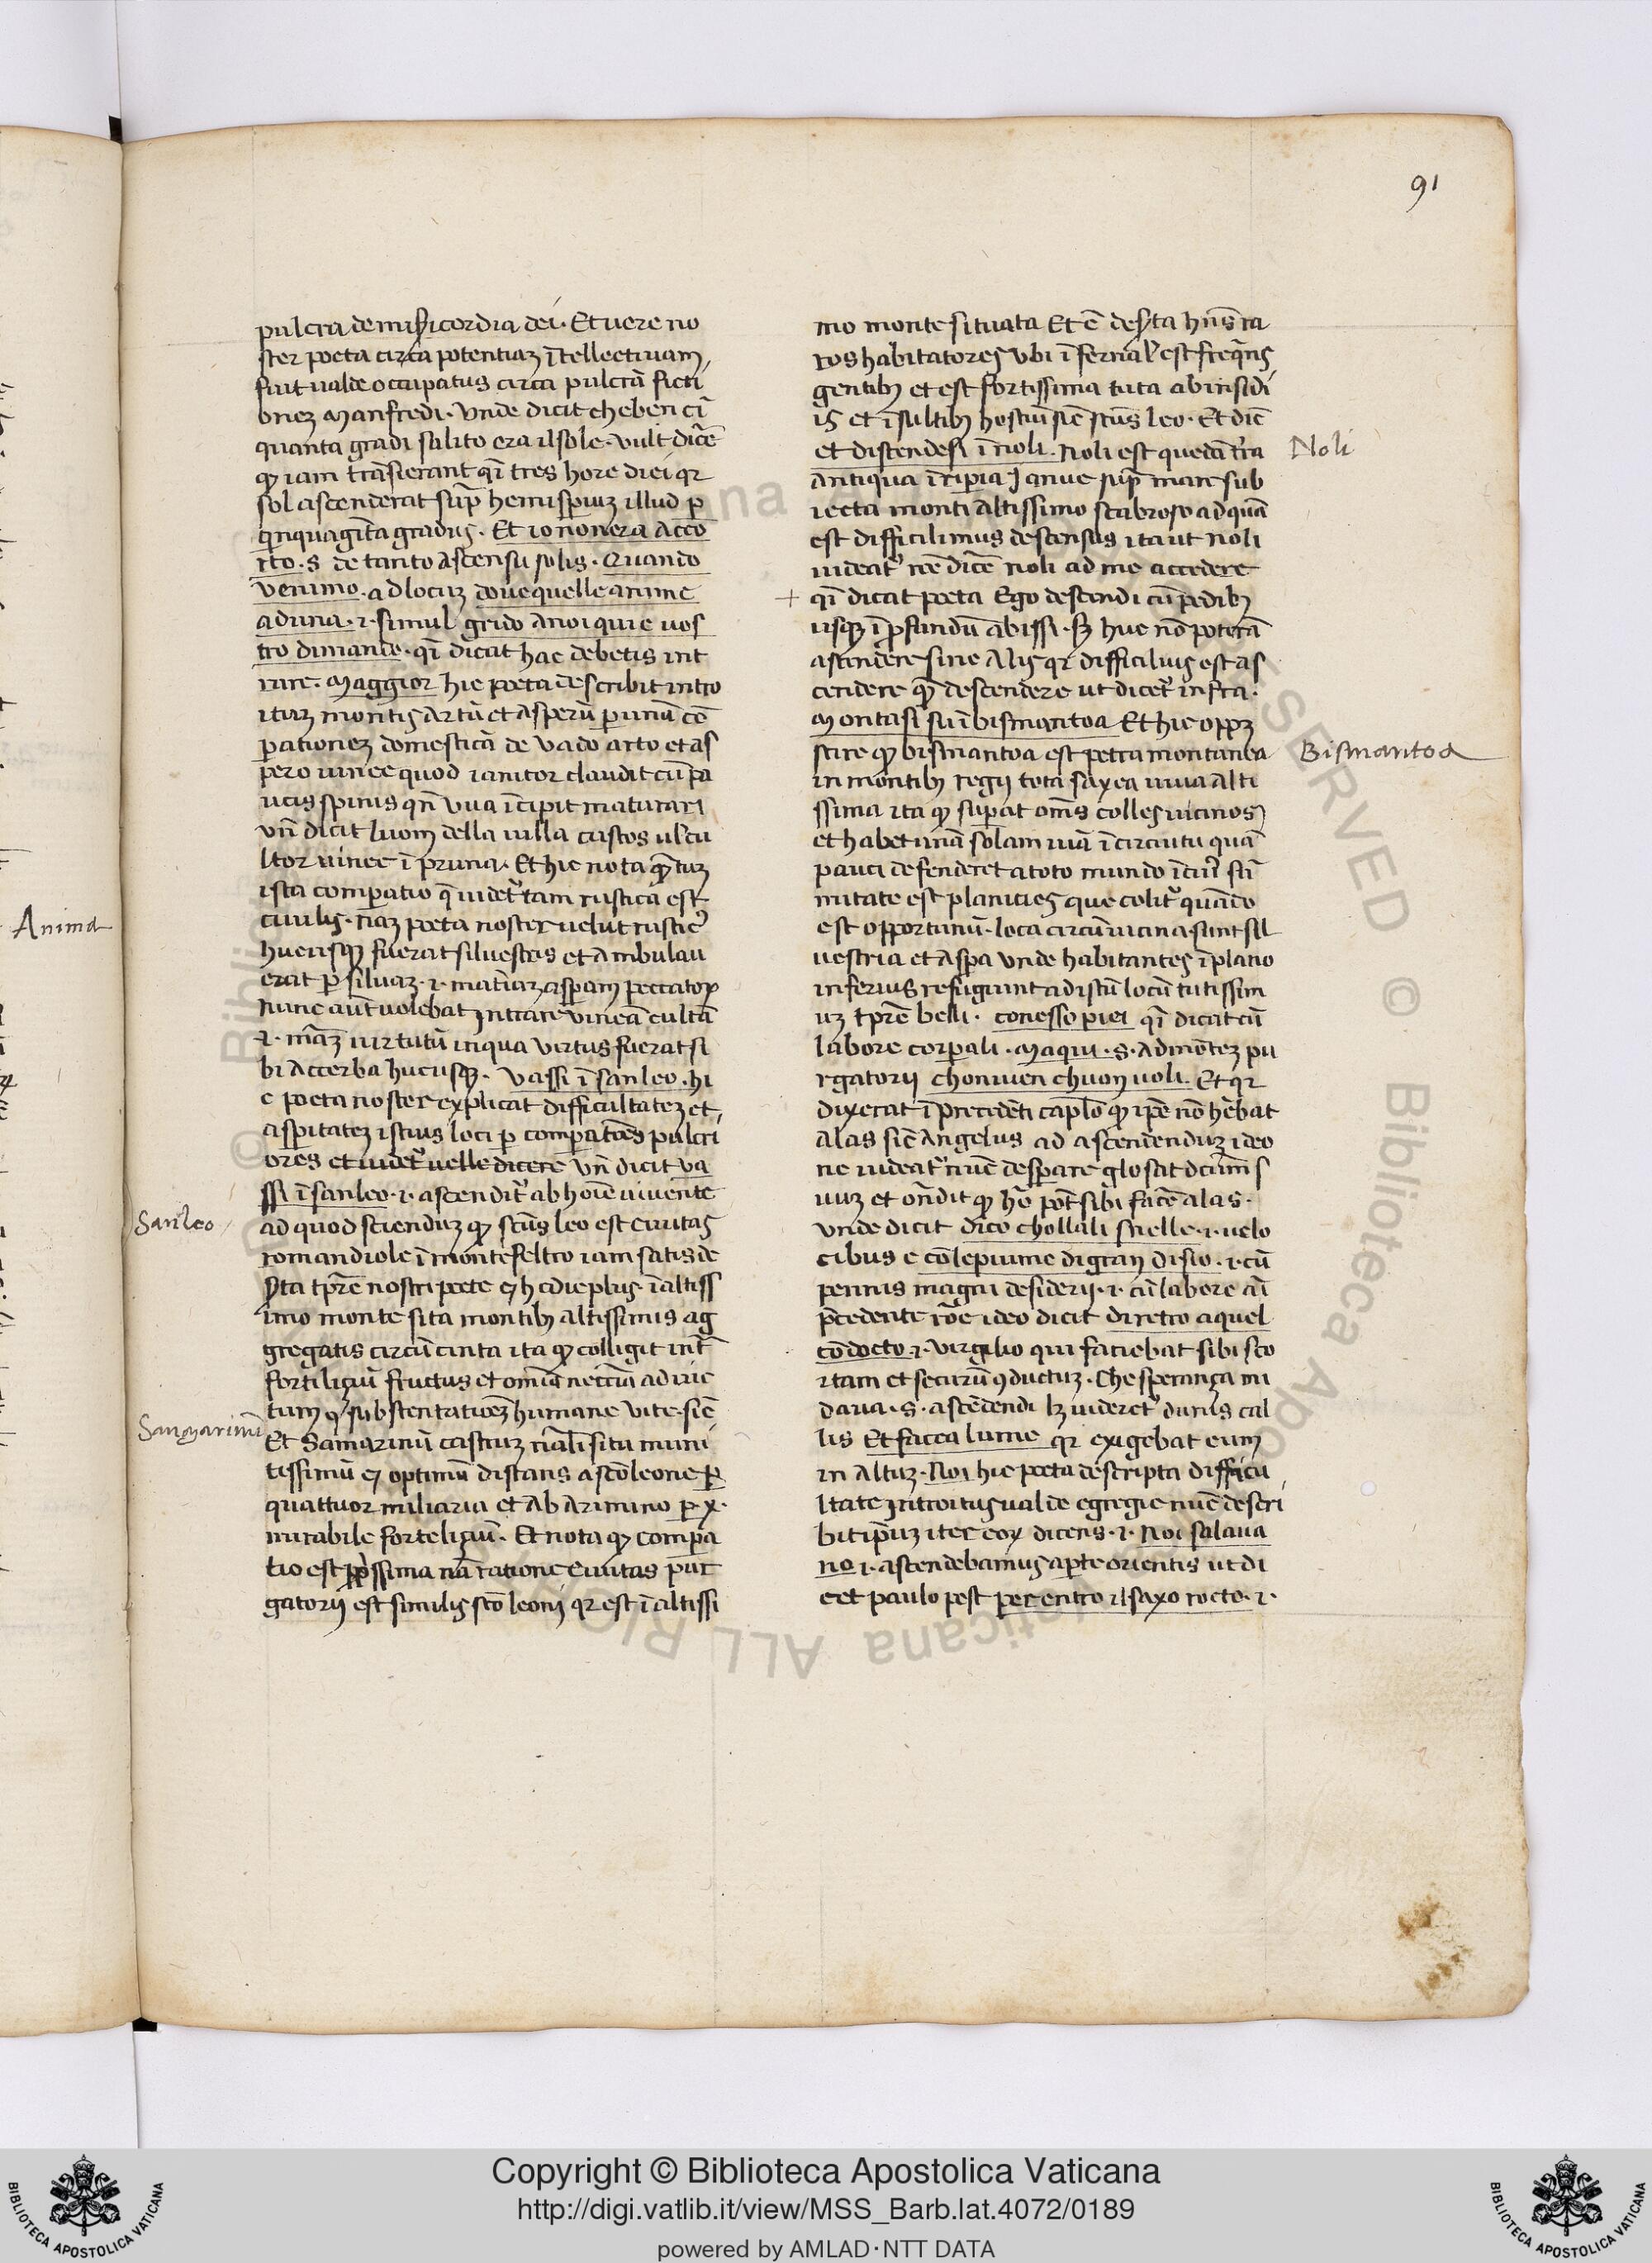 91
pulcra de mis̄icordia dei. Et uere no
ster poeta circa potentiaz ītellectiuam,
fuit ualde occupatus circa pulcrā ficti
onez Manfredi. Vnde dicit che ben cī
quanta gradi salito era il sole. vult dicē
qꝫ iam trāsierant qī tres hore diei qr
sol ascenderat sup̄ hemisperiuz illud p̄
qīnquagīta gradus. Et io non era acco
rto. s de tanto ascensu solis. Quando
venimo. ad locuz doue quelle anime
ad una. i. simul grido a noi qui e uos
tro dimande. qī dicat hac debetis int
rare. Maggior hic poeta describit intro
ituz montis artū et asperū p unā cō
pationez domesticā de vado arto et as
pero uinee quod ianitor claudit cū pa
ucis spinis qn̄ vua īcipit maturari
vn̄ dicit luom della uilla custos ul cu
ltor uinee ī pruna. Et hic nota qꝫ tuz
ista comparatio q̄ uidet̄ tam rustica est
ciuilis. nāz poeta noster uelut rustic9
hucusqꝫ fuerat siluestris et ambulau
erat p siluaz. i. materiaz asperam peccatoꝝ
nunc aūt uolebat intrare vineā cultā
i. māz uirtutū in qua virtus fuerat si
bi accerba hucusqꝫ. Vassi ī sanleo. hi
c poeta noster explicat difficultatez et,
aspitatez istius loci p compatōes pulcri
ores et uidet̄ uelle dicere vn̄ dicit va
ssi ī sanleo. i. ascendit̄ ab hoīe uiuente
ad quod sciendūz qꝫ scūs leo est ciuitas
romandiole ī monteferltro iam satis de
s̄ta tp̄re nostri poete et hodie plus. ī altiss
imo monte sita montibꝫ altissimis ag
gregatis circū cinta ita qꝫ colligit int̄
fortiliciū fructus et omīa neccīa ad uic
tum et substentatiōez humane vite. sic̄
Et Samarinū castruz nāli situ muni
tissimū et optimū distans a sco leone p
quattuor miliaria et ab arimino p. x.
mirabile forteliciū. Et nota qꝫ compa
tio est pp̄ssima nā ratione ciuitas pur
gatorij est similis sco leoni qr est ī altissi
mo monte situata Et ē des̄ta hn̄s ra
ros habitatores vbi īfernal' est freqn̄s
gentibꝫ et est fortissima tuta ab insidi
is et īsultibꝫ hostiū sic̄ scūs leo. Et dīc
et discendesi ī noli. Noli est quedā t̄ra
antiqua ī riperia Janue sup̄ mare sub
iecta monti altissimo scabroso ad quā
est difficilimus descensus ita ut noli
uideat̄ nc̄ dicē noli ad me accedere
qī dicat poeta Ego descendi cū pedibꝫ
usqꝫ ī p̄fundū abissi. Sꝫ huc nō poterā
ascendere sine alis qr difficilius est as
cendere qꝫ descendere ut dicet̄ infra.
Montasi su ī bismantoa Et hic oppꝫ
scire qꝫ bismantoa est petra montanea
in montibꝫ regij tota saxea uiua alti
ssima ita qꝫ supat om̄s colles uicinos
et habet unā solam uiā ī circuitu quā
pauci defenderet a toto mundo ī cui9 sū
mitate est planicies que colit̄ quādo
est opportunū. loca circūuicina sunt sil
uestria et aspa vnde habitantes ī plano
inferius refugiunt ad istū locū tutissim
uz tp̄re belli. con esso piei qī dicat cū
labore corporali. Ma qui. s. ad mōtez pu
rgatorij chonuien chuom uoli. Et qr
dixerat ī precedēti capl'o qꝫ ipē nō hēbat
alas sic̄ angelus ad ascendenduz ideo
ne uideat̄ nunc desperare glosat dcūm s
uuz et on̄dit qꝫ hō pōt sibi facē alas.
vnde dicit dico chollali snelle. i. uelo
cibus e cōle piume di gran disio. i. cū
pennis magni desiderij. i. cū labore aī
p̄cedente rōe ideo dicit di retro a quel
cōdocto. i. virgilio qui faciebat sibi sco
rtam et securū ꝯductuz. Che speranza mi
daua. s. ascēdendi lꝫ uideret̄ durus cal
lis Et facea lume qr exigebat eum
in altuz. Noi hic poeta descripta difficu
ltate introitus ualde egregie nunc descri
bit ip̄uz iter eoꝝ dicens. i. Noi salaua
no. i. ascendebamus a p̄te orientis ut di
cet paulo post per entro il saxo rocto. i.
Anima
Sanleo
Sanmarini
Noli
+
Bismantoa
Copyright © Biblioteca Apostolica Vaticana
http://digi.vatlib.it/view/MSS_Barb.lat.4072/0189
powered by AMLAD·NTT DATA
BIBLIOTECA APOSTOLICA VATICANA
BIBLIOTECA APOSTOLICA VATICANA